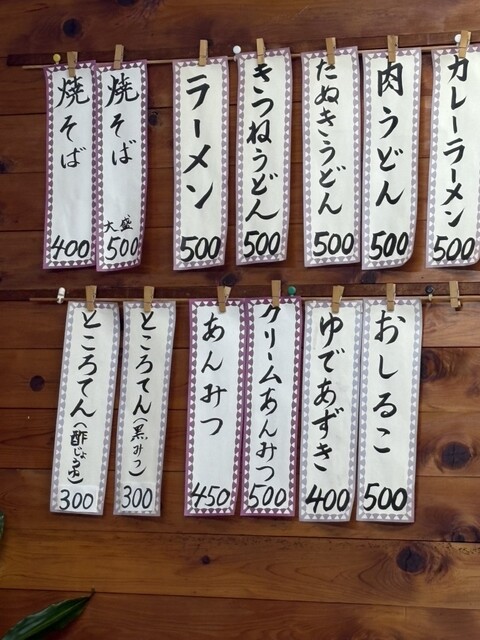 焼そば
400
焼そば
大盛
500
ラーメン
500
きつねうどん
500
たぬきうどん
500
肉うどん
500
カレーラーメン
500
ところてん(酢じょうゆ)
300
ところてん(黒みつ)
300
あんみつ
450
クリームあんみつ
500
ゆであずき
400
おしるこ
500